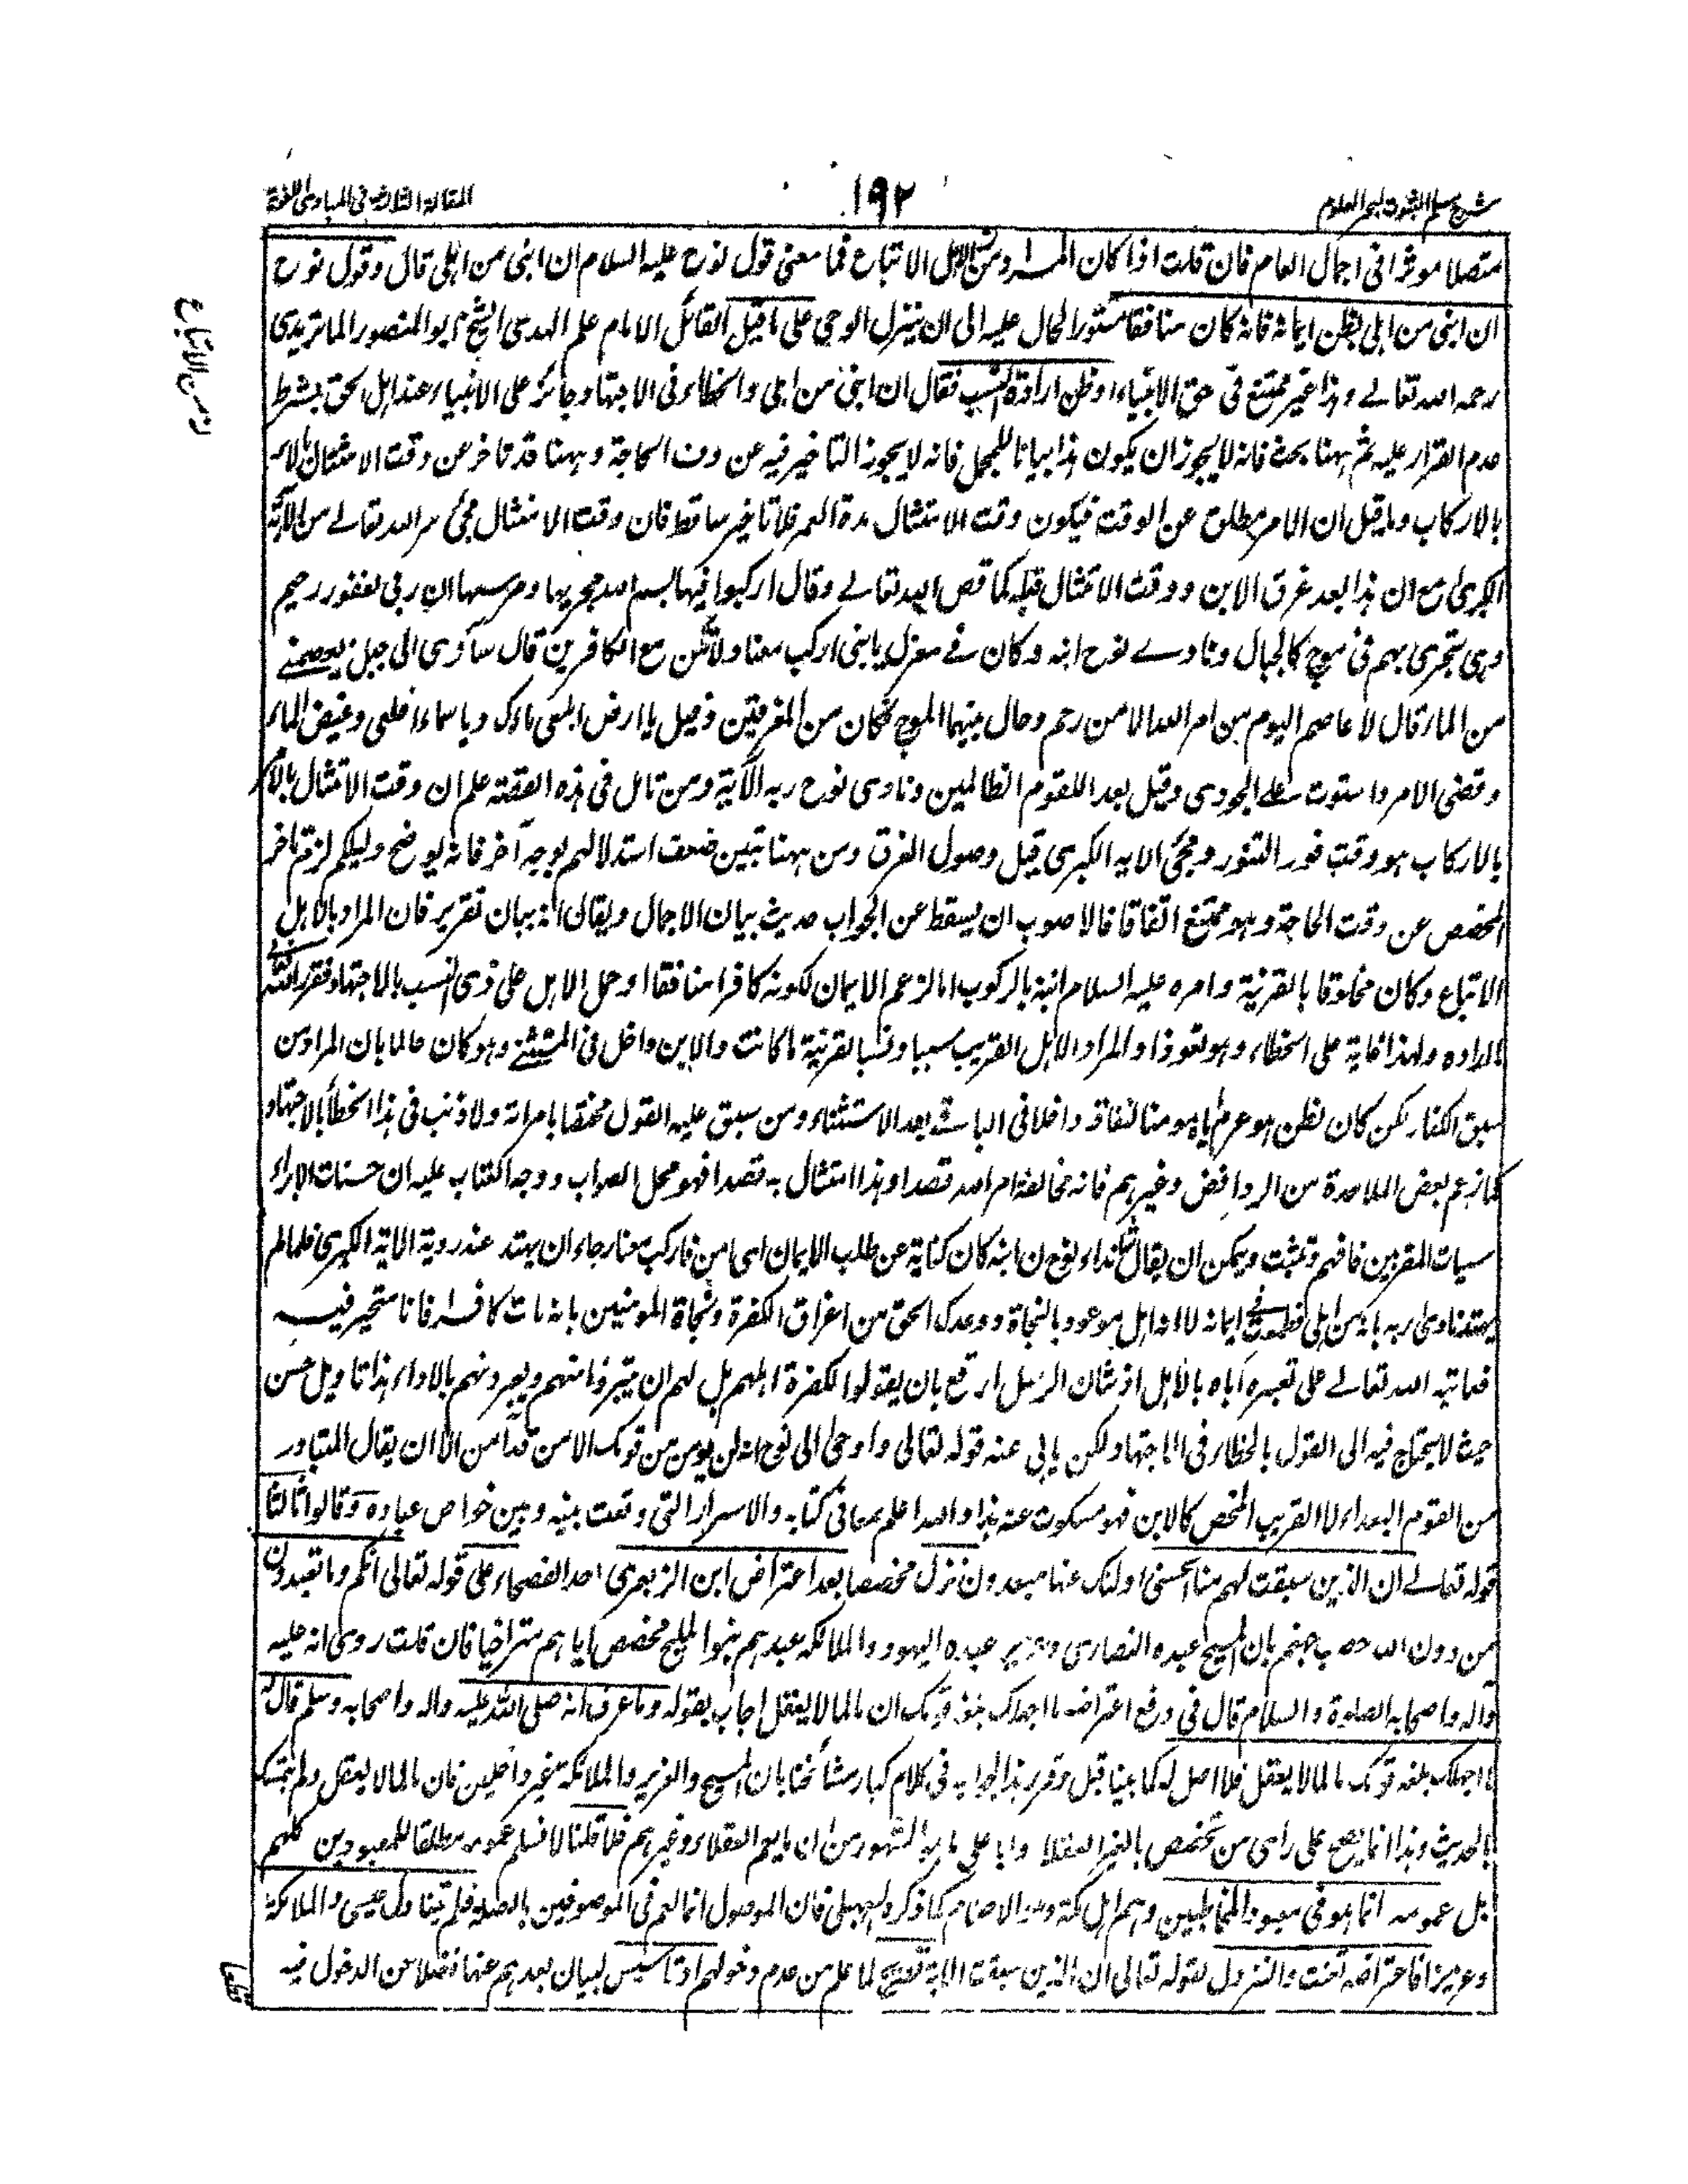 شرح مسلم الثبوت لبحر العلوم
١٩٢
المقالة الثالثة في المبادى اللغوية
متصلا موثرا فى اجمال العام فان قلت اذا كان المراد من الاهل الاتباع فما معنى قول نوح عليه السلام ان ابنى من اهلى قال وقول نوح
ان ابنى من اهلى بظن ايمانه فانه كان منافقا مستور الحال عليه الى ان ينزل الوحى على ما قيل القائل الامام علم الهدى الشيخ ابو المنصور الماتريدى
رحمه الله تعالے وهذا غير ممتنع فى حق الانبياء او ظن ارادة النسب فقال ان ابنى من اهلى والخطاء فى الاجتهاد جائز على الانبياء عند اهل الحق بشرط
عدم القرار عليه ثم ههنا بحث فانه لا يجوز ان يكون هذا بيانا للمجمل فانه لا يجوز التاخير فيه عن وقت الحاجة وههنا قد تاخر عن وقت الامتثال بالامر
بالاركاب وما قيل ان الامر مطلق عن الوقت فيكون وقت الامتثال مدة العمر فلا تاخير ساقط فان وقت الامتثال مجئ امر الله تعالے من الآية
الكبرى مع ان هذا بعد غرق الابن ووقت الامتثال قبله كما قص الله تعالے وقال اركبوا فيها بسم الله مجريها ومرسها ان ربى لغفور رحيم
وهى تجرى بهم فى موج كالجبال ونادے نوح ابنه وكان فے معزل يا بنى اركب معنا ولا تكن مع الكافرين قال سآوى الى جبل يعصمنے
من الماء قال لا عاصم اليوم من امر الله الا من رحم وحال بينهما الموج فكان من المغرقين وقيل يا ارض ابلعى ماءك ويا سماء اقلعى وغيض الماء
وقضى الامر واستوت علے الجودى وقيل بعدا للقوم الظالمين ونادى نوح ربه الآية ومن تامل فى هذه القصة علم ان وقت الامتثال بالامر
بالاركاب هو وقت فور التنور ومجئ الاية الكبرى قبل وصول الغرق ومن ههنا تبين ضعف استدلالهم بوجه آخر فانه لو صح دليلكم لزم تاخر
المخصص عن وقت الحاجة وهو ممتنع اتفاقا فالاصوب ان يسقط عن الجواب حديث بيان الاجمال ويقال انه بيان تقرير فان المراد بالاهل
الاتباع وكان معلوما بالقرينة وامره عليه السلام ابنه بالركوب اما لزعم الايمان لكونه كافرا منافقا او حمل الاهل على ذى النسب بالاجتهاد
والابن داخل فى المستثنے وهو كان عالما بان المراد من
سبق الكفار لكن كان لظن داخلا فى الباقے بعد الاستثناء ومن سبق عليه القول مختصا بامرأته ولا ذنب فى هذا الخطأ بالاجتهاد
كما زعم بعض الملاحدة من الروافض وغيرهم فانه مخالفة امر الله قصدا وهذا امتثال به قصدا فهو محل الصواب ووجه العتاب عليه ان حسنات الابرار
سيات المقربين فافهم وتثبت ويمكن ان يقال نداء نوح ابنه كان كناية عن طلب الايمان اى امن فاركب معنا رجاء ان يهتد عند روية الاية الكبرى فلما لم
يهتد نادى ربه بانه من اهلى ايمانه لا واهلى موعود بالنجاة ووعدك الحق من اغراق الكفرة ونجاة المومنين بانه مات كافرا فانا متحير فيه
فعاتبه الله تعالے على تعبيره اياه بالاهل اذ شان الرسل ارفع بان يقولوا للكفرة اهلهم بل لهم ان يتبرؤا منهم هذا تاويل حسن
حيث لا يحتاج فيه الى القول بالخطاء فى الاجتهاد ولكن يابى عنه قوله تعالى واوحى الى نوح انه لن يومن من قومك الا من قد امن الا ان يقال المتبادر
من القوم البعداء لا القريب المختص كالابن فهو مسكوت عنه هذا والله اعلم بمعانى كتابه والاسرار التى وقعت بينه وبين خواص عباده وقالوا ثالثا
قوله تعالے ان الذين سبقت لهم منا الحسنى اولئك عنها مبعدون نزل مخصصا بعد اعتراض ابن الزبعرى احد الفصحاء على قوله تعالى انكم وما تعبدون
من دون الله حصب جهنم بان المسيح عبده النصارى وعزير عبده اليهود والملائكة عبدهم بنوا المليح مخصص اياهم متراخيا فان قلت روى انه عليه
وآله واصحابه الصلوة والسلام قال فى دفع اعتراضه ما اجهلك بلغة قومك ان ما لما لا يعقل اجاب بقوله وما عرف انه صلى الله عليه واله واصحابه وسلم قال له
ما اجهلك بلغة قومك ما لما لا يعقل فلا اصل له كما بينا قبل وقرر هذا الجواب فى كلام كبار مشائخنا بان المسيح والعزير والملائكة غير داخلين فان ما لما لا يعقل ولم يتمسك
بالحديث وهذا انما يصح على راى من تخصص بالغير العقلا واما على ما هو المشهور من ان ما يعم العقلاء وغيرهم فلا قلنا لا نسلم عمومه مطلقا للمعبودين كلهم
بل عمومه انما هو فى معبود المخاطبين وهم اهل مكة الاصنام كما ذكره السهيلى فان الموصول انما لهم فى الموصوفين بالصلة فلم يتناول عيسى والملائكة
وعزيرا فاعتراضه تعنت والنزول لقوله تعالى ان الذين سبقت الاية تصريح لما علم من عدم دخولهم او تاسيس لبيان بعدهم عنها فضلا عن الدخول فيه